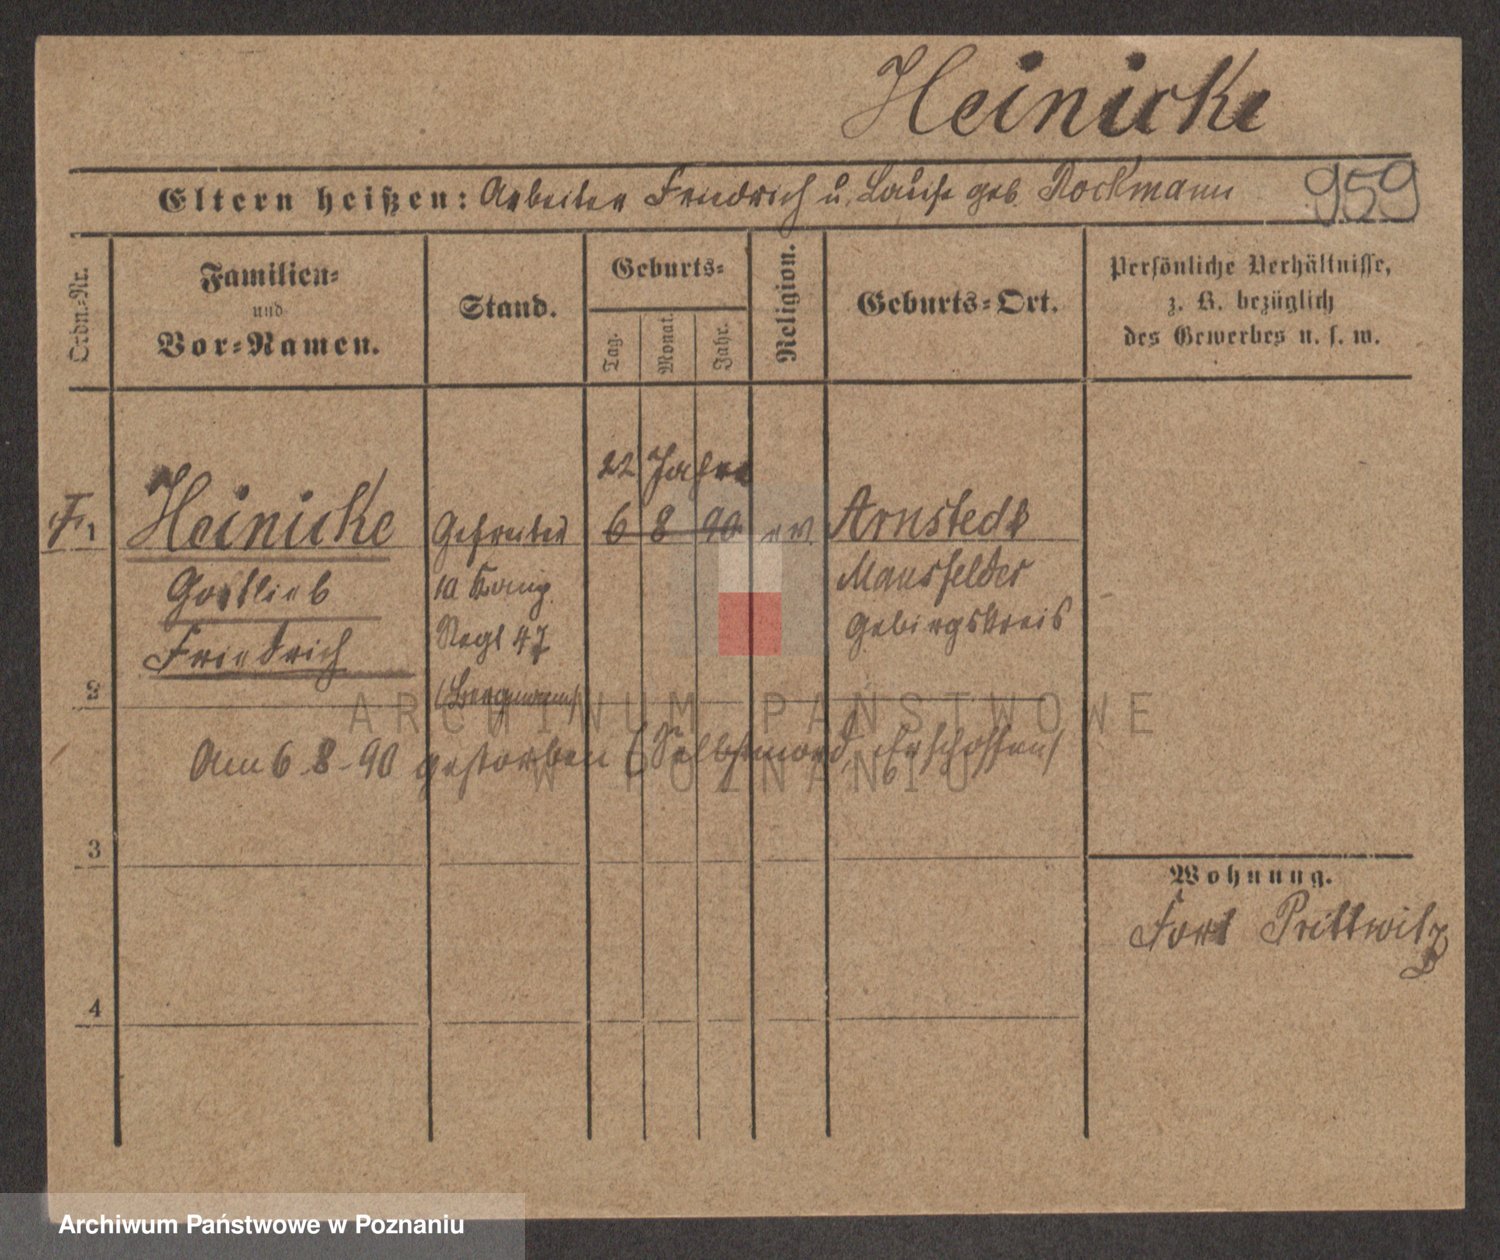 Heinicke
Eltern heißen: Arbeiter Friedrich u. Luise geb. Rockmann 959
Ordn.-Nr.
Familien-
und
Vor-Namen.
Stand.
Geburts-
Tag. Monat. Jahr.
Religion.
Geburts-Ort.
Persönliche Verhältnisse,
z. B. bezüglich
des Gewerbes u. s. w.
22 Jahre
F. 1 Heinicke Gefreiter 6 8 90 ev. Arnstedt
Gottlieb 10 Komp. Mansfelder
Friedrich Regt 47 Gebirgskreis
2 (Bergmann)
ARCHIWUM PAŃSTWOWE
W POZNANIU
Am 6-8-90 gestorben (Selbstmord, Erschossen)
3
Wohnung.
Fort Prittwitz
4
Archiwum Państwowe w Poznaniu